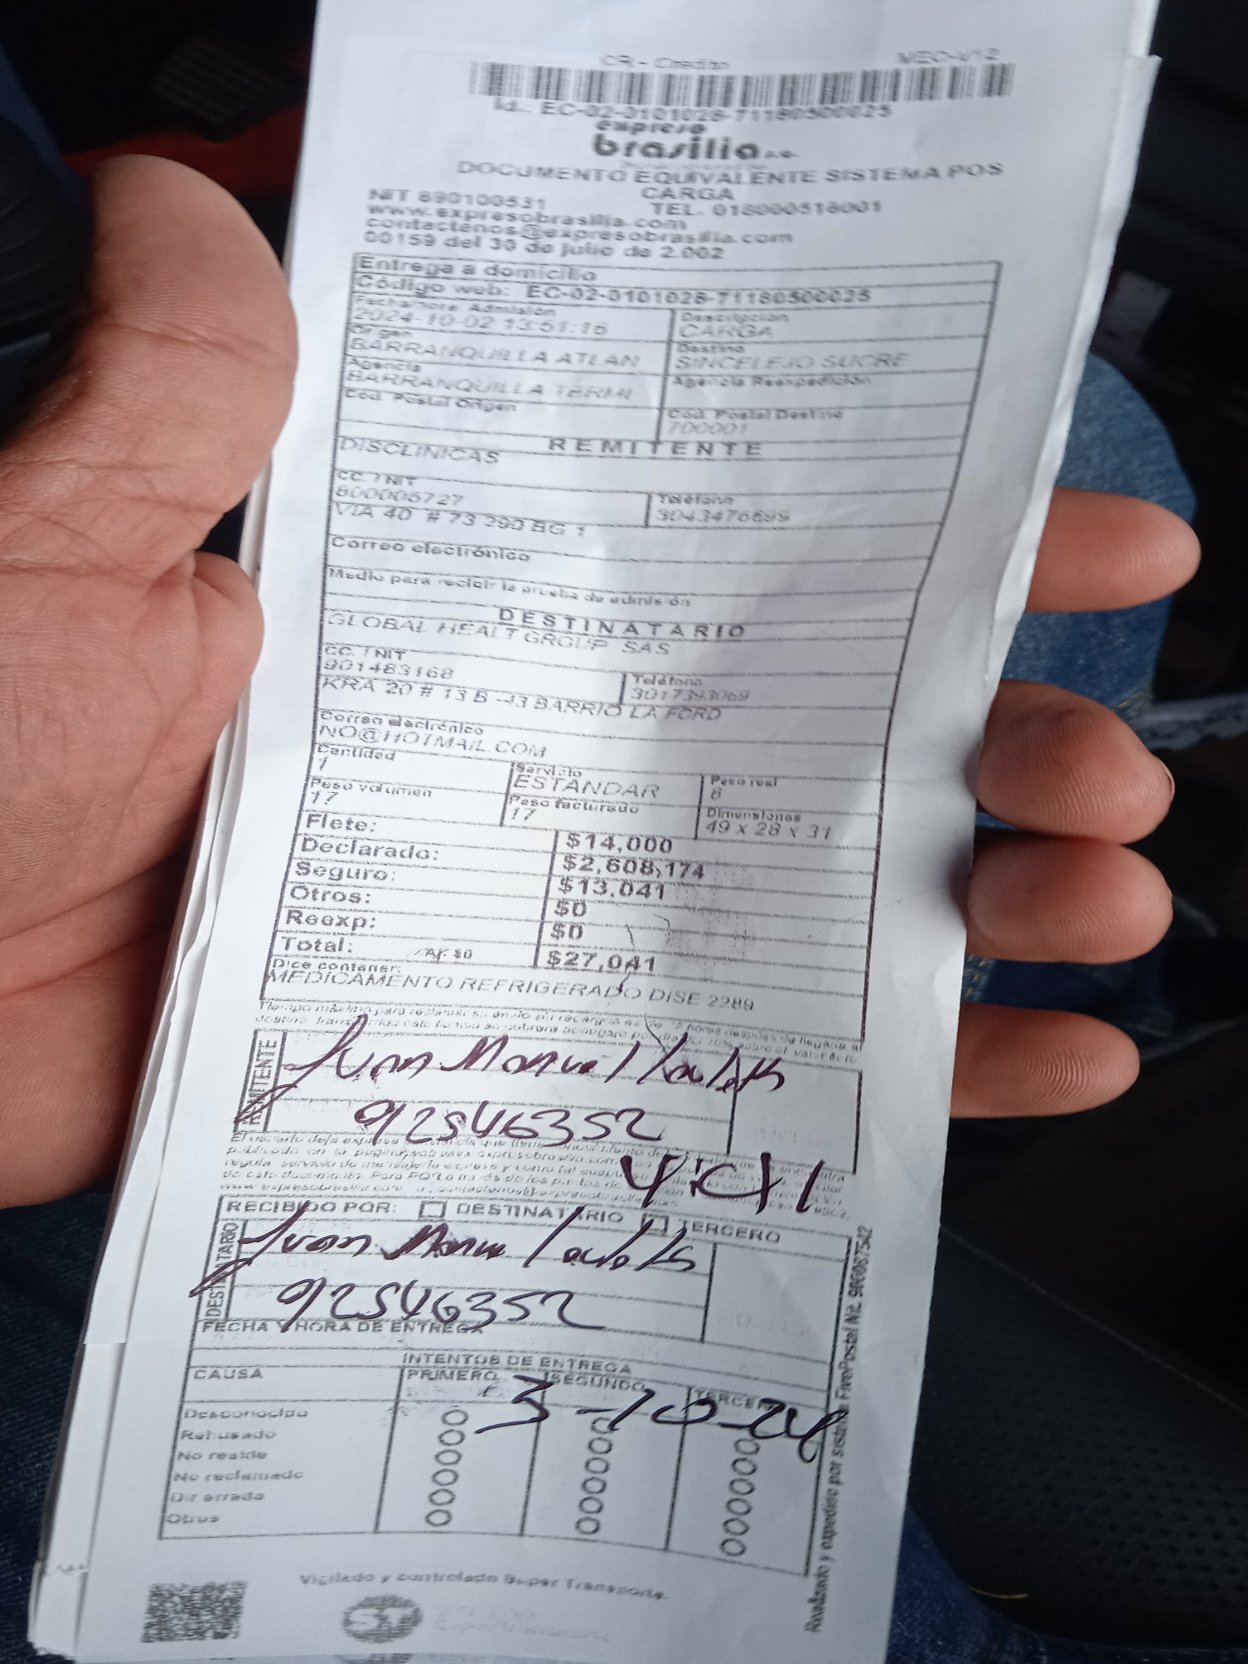 CR - Credito MZC-V12
Id.: EC-02-0101028-71180500025
expreso
brasilia s.a.
DOCUMENTO EQUIVALENTE SISTEMA POS
CARGA
NIT 890100531 TEL. 018000518001
www.expresobrasilia.com
contactenos@expresobrasilia.com
00159 del 30 de julio de 2.002
Entrega a domicilio
Código web: EC-02-0101028-71180500025
Fecha/Hora Admisión Descripción
2024-10-02 13:51:16 CARGA
Origen Destino
BARRANQUILLA ATLAN SINCELEJO SUCRE
Agencia Agencia Reexpedición
BARRANQUILLA TERMI
Cód. Postal Origen Cód. Postal Destino
700001
REMITENTE
DISCLINICAS
CC. / NIT Teléfono
800006727 3043476699
VIA 40 # 73 290 BG 1
Correo electrónico
Medio para recibir la prueba de admisión
DESTINATARIO
GLOBAL HEALT GROUP SAS
CC. / NIT Teléfono
901483168 3017393069
KRA 20 # 13 B -43 BARRIO LA FORD
Correo electrónico
NO@HOTMAIL.COM
Cantidad Servicio Peso real
1 ESTANDAR 8
Peso volumen Peso facturado Dimensiones
17 17 49 x 28 x 31
Flete: $14,000
Declarado: $2,608,174
Seguro: $13,041
Otros: $0
Reexp: $0
Total: $0 $27,041
Dice contener:
MEDICAMENTO REFRIGERADO DISE 2289
REMITENTE
Juan Manuel
92546352
RECIBIDO POR: DESTINATARIO TERCERO
DESTINATARIO
Juan Manue
92546352
FECHA Y HORA DE ENTREGA
INTENTOS DE ENTREGA
CAUSA PRIMERO SEGUNDO TERCERO
3-10-24
Desconocido
Rehusado
No reside
No reclamado
Dir errada
Otros
Realizado y expedido por sistema FivePostal Nit. 900087542
Vigilado y controlado Super Transporte.